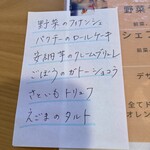 野菜のフィナンシェ
パクチーのロールケーキ
安納芋のクレームブリュレ
ごぼうのガトーショコラ
さといもトリュフ
えごまのタルト
野菜
シェフ
デザ
全てド
オレン